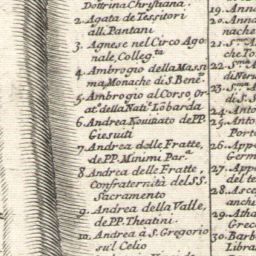 Dottrina Christiana.
2. Agata de Tessitori
all. Pantani
3. Agnese nel Circo Ago-
nale, Colleg.ta
4. Ambrogio della Massi
ma, Monache di S. Bene.
5. Ambrogio al Corso, Or
at. della Nat. Lobarda
6. Andrea Nouitiato de PP.
Giesuiti
7. Andrea delle Fratte,
de PP. Minimi Par.
8 Andrea delle Fratte,
Confraternità del SS.
Sacramento
9. Andrea della Valle,
de PP. Theatini.
10. Andrea à S. Gregorio
su'l Celio
19. Anna
20. Anna
nache
21. S.
che To
22. S.
di Ners
23. S.
di S. J
24. Anto
25. Anto
Porto
26. Appo
Germ
27. Appo
del te
28. Asce
anchi
29. Atha
Greco
30. Barb
Libra